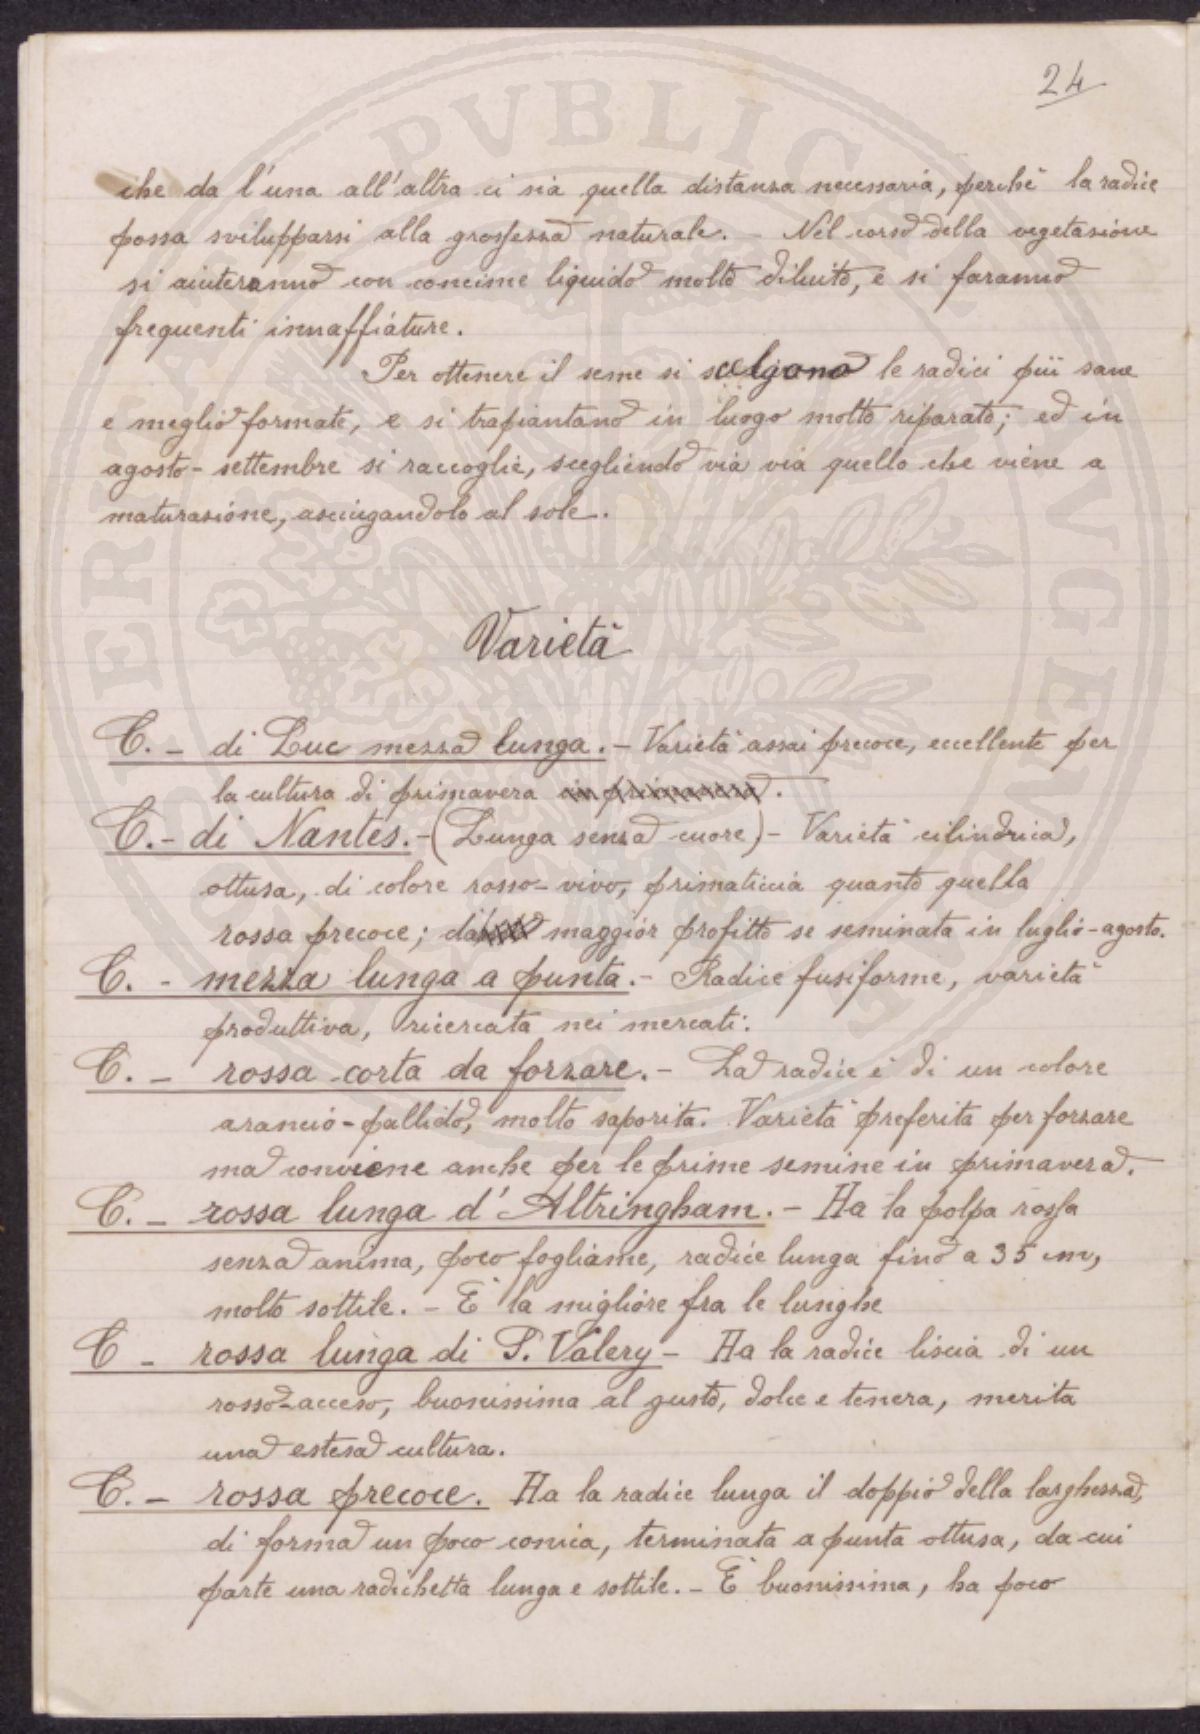 24
che da l'una all'altra ci sia quella distanza necessaria, perchè la radice
possa svilupparsi alla grossezza naturale. - Nel corso della vegetazione
si aiuteranno con concime liquido molto diluito, e si faranno
frequenti innaffiature.
Per ottenere il seme si scelgono le radici più sane
e meglio formate, e si trapiantano in luogo molto riparato; ed in
agosto-settembre si raccoglie, scegliendo via via quello che viene a
maturazione, asciugandolo al sole.
Varietà
C. - di Luc mezza lunga. - Varietà assai precoce, eccellente per
la cultura di primavera in primavera.
C. - di Nantes. - (Lunga senza cuore) - Varietà cilindrica,
ottusa, di colore rosso-vivo, primaticcia quanto quella
rossa precoce; dà maggior profitto se seminata in luglio-agosto.
C. - mezza lunga a punta. - Radice fusiforme, varietà
produttiva, ricercata nei mercati.
C. - rossa corta da forzare. - La radice è di un colore
arancio-pallido, molto saporita. Varietà preferita per forzare
ma conviene anche per le prime semine in primavera. -
C. - rossa lunga d'Altringham. - Ha la polpa rossa
senza anima, poco fogliame, radice lunga fino a 35 cm,
molto sottile. - È la migliore fra le lunghe
C - rossa lunga di S. Valery - Ha la radice liscia di un
rosso-acceso, buonissima al gusto, dolce e tenera, merita
una estesa cultura.
C. - rossa precoce. Ha la radice lunga il doppio della larghezza,
di forma un poco conica, terminata a punta ottusa, da cui
parte una radichetta lunga e sottile. - È buonissima, ha poco